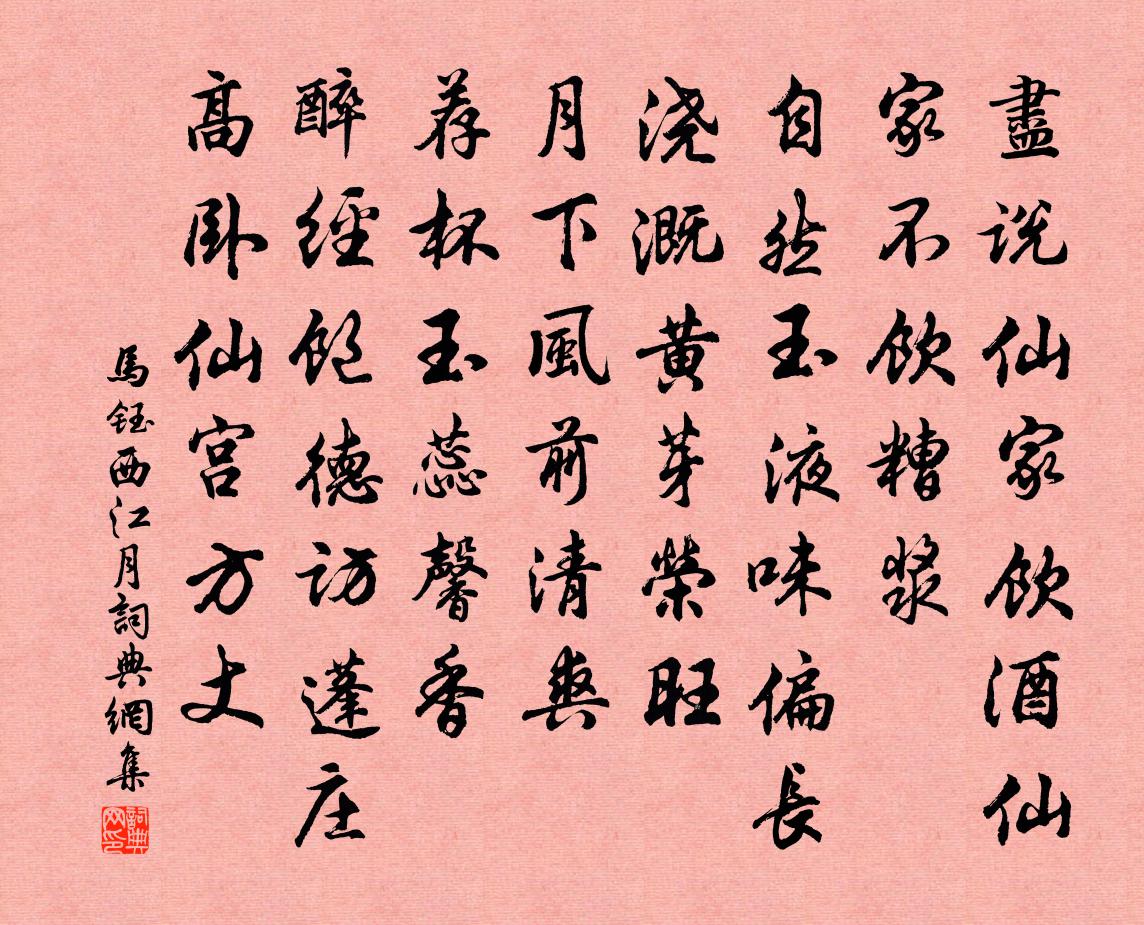 盡说仙家飲酒仙
家不飲糟漿
自然玉液味偏長
浇溉黄芽榮旺
月下風前清爽
荐杯玉蕊馨香
醉經飽德访蓬庄
高卧仙宫方丈
馬鈺西江月詞典網集
詞典网印